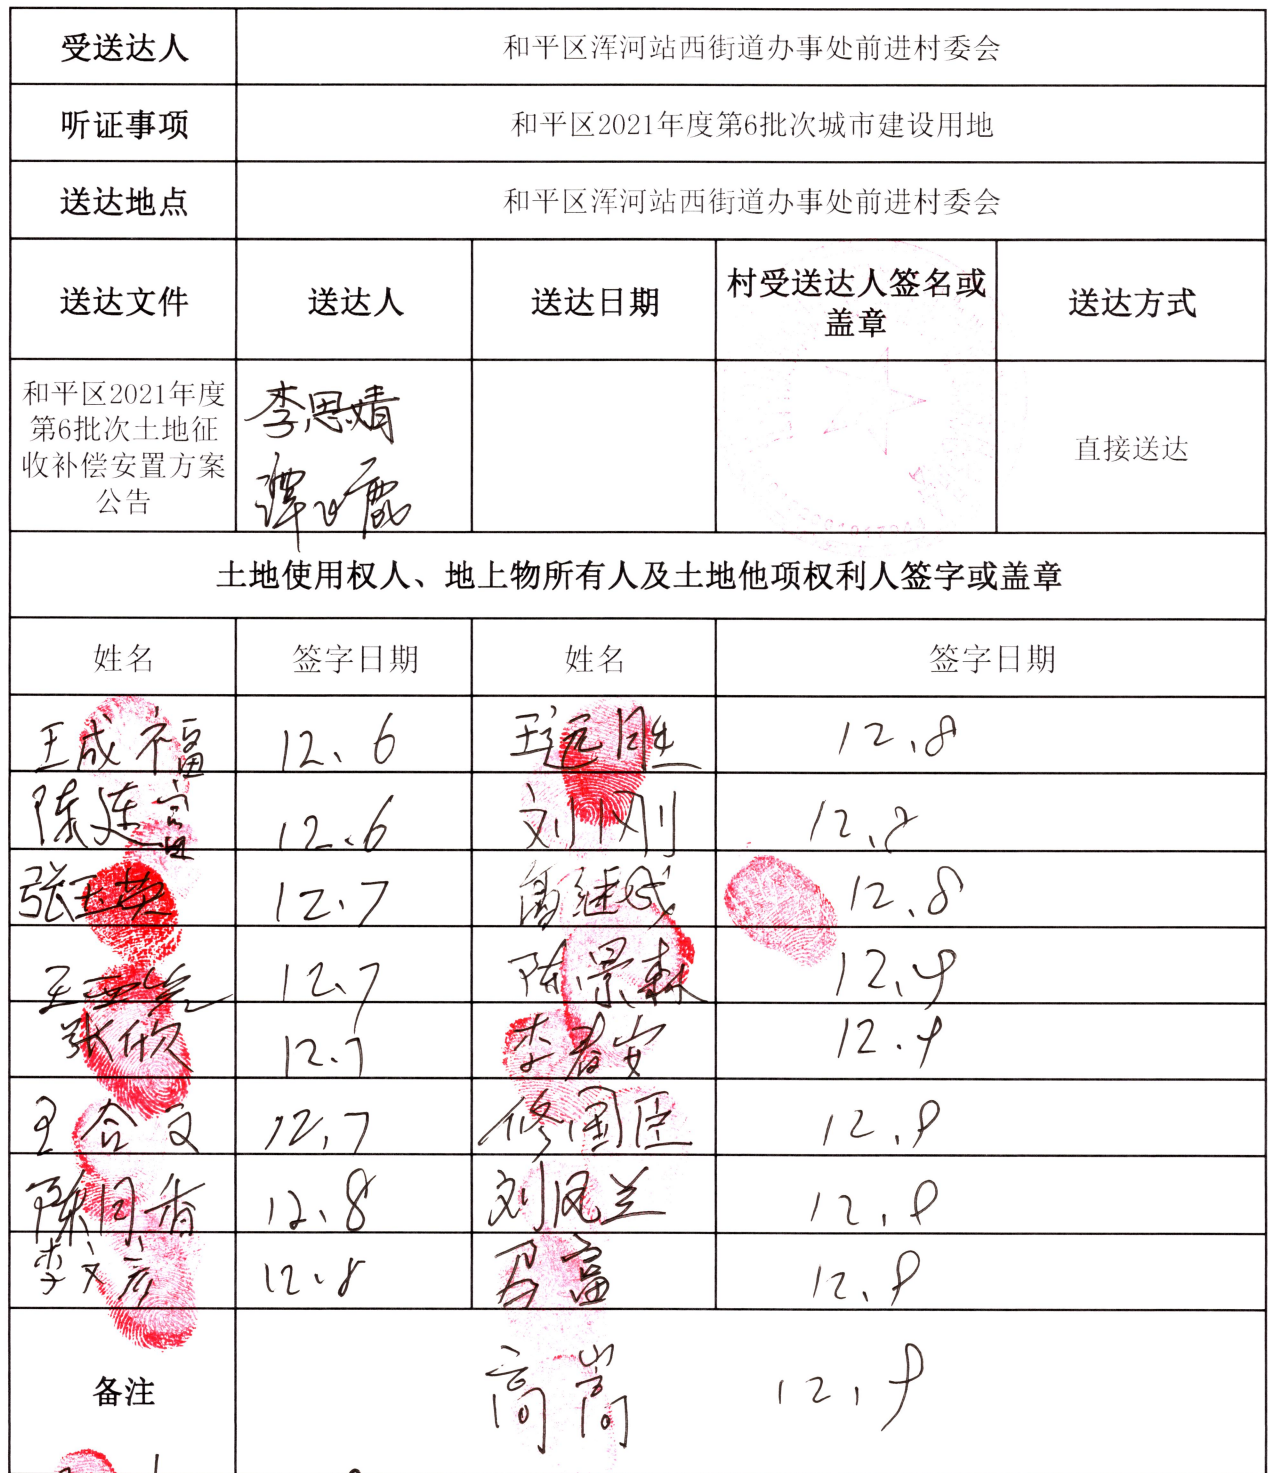 受送达人 和平区浑河站西街道办事处前进村委会
听证事项 和平区2021年度第6批次城市建设用地
送达地点 和平区浑河站西街道办事处前进村委会
送达文件 送达人 送达日期 村受送达人签名或盖章 送达方式
和平区2021年度
第6批次土地征
收补偿安置方案
公告
李思婧
直接送达
土地使用权人、地上物所有人及土地他项权利人签字或盖章
姓名 签字日期 姓名 签字日期
王成福 12.6 王远胜 12.8
陈廷富 12.6 刘刚 12.8
张玉英 12.7 12.8
12.7 陈景森 12.9
张欣 12.7 李春安 12.9
王合文 12.7 修国臣 12.9
陈同香 12.8 刘凤兰 12.9
李文彦 12.8 12.9
备注 高嵩 12.9